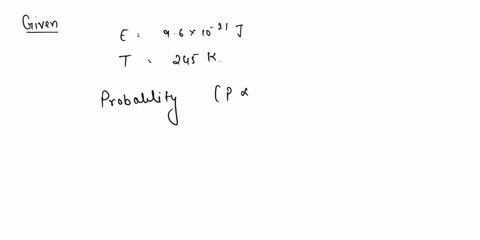 Given
E = 9.6 × 10⁻²¹ J
T = 245 K.
Probability (P α